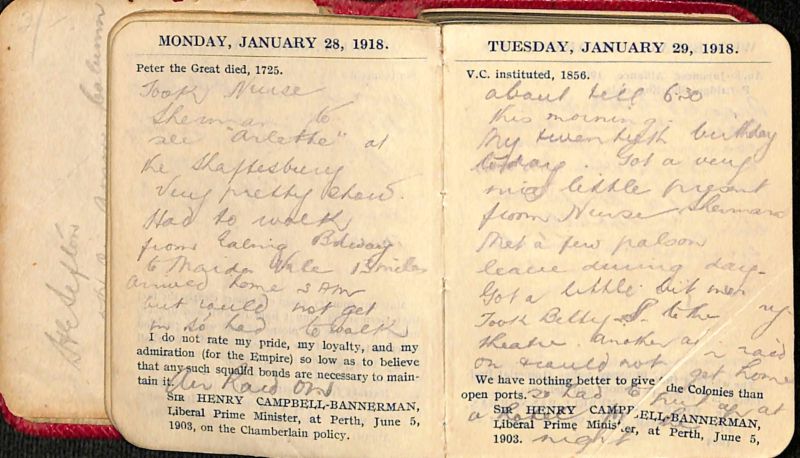 MONDAY, JANUARY 28, 1918.
Peter the Great died, 1725.
Took Nurse
Sherman to
see "Arlette" at
the Shaftesbury
Very pretty show.
Had to walk
from Ealing Bdway
to Maida Vale 13 miles
arrived home 3 AM
but could not get
in so had to walk
I do not rate my pride, my loyalty, and my
admiration (for the Empire) so low as to believe
that any such squalid bonds are necessary to main-
tain it.
Air Raid on
SIR HENRY CAMPBELL-BANNERMAN,
Liberal Prime Minister, at Perth, June 5,
1903, on the Chamberlain policy.
TUESDAY, JANUARY 29, 1918.
V.C. instituted, 1856.
about till 6.30
this morning.
My twentieth birthday
today. Got a very
nice little present
from Nurse Sherman
Met a few pals on
leave during day.
Got a little bit
Took Betty S. to the
theatre. another air raid
on & could not get home
We have nothing better to give the Colonies than
open ports.
so had to at
SIR HENRY CAMPBELL-BANNERMAN,
a
Liberal Prime Minister, at Perth, June 5,
1903.
night